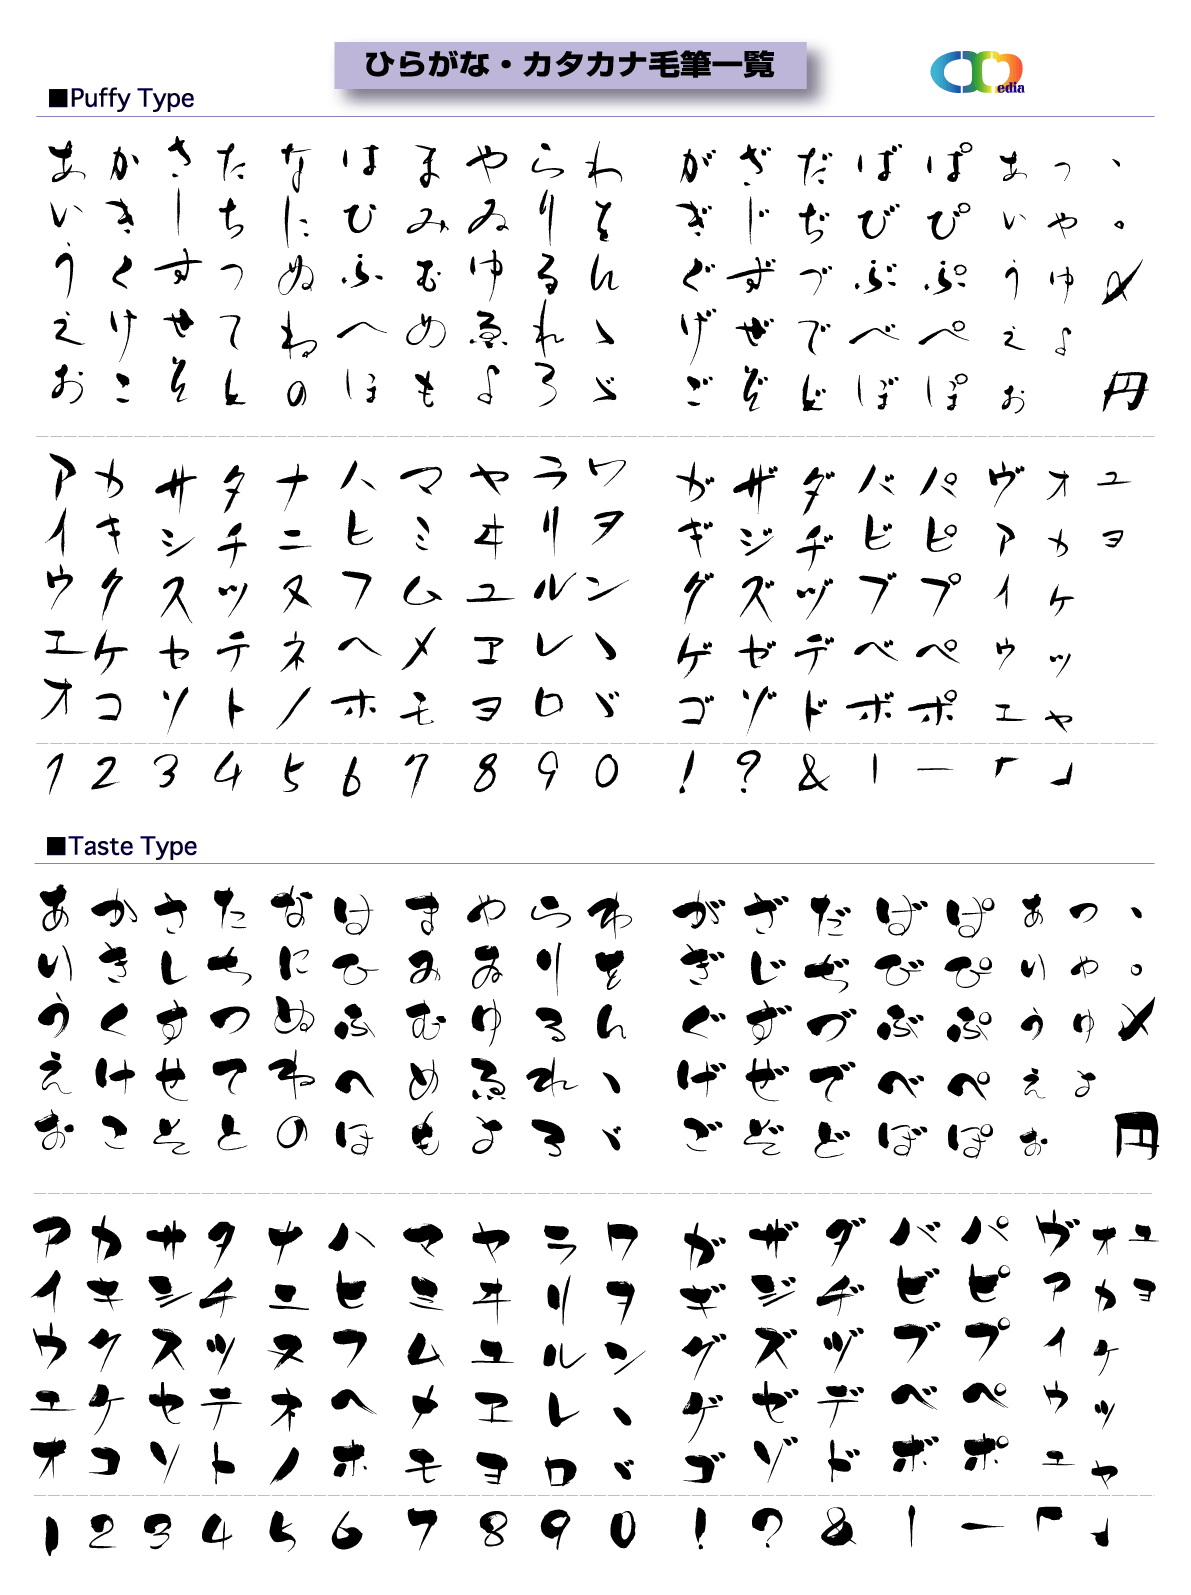 ひらがな・カタカナ毛筆一覧
edia
■Puffy Type
あ か さ た な は ま や ら わ が ざ だ ば ぱ ぁ っ 、
い き し ち に ひ み ゐ り を ぎ じ ぢ び ぴ ぃ ゃ 。
う く す つ ぬ ふ む ゆ る ん ぐ ず づ ぶ ぷ ぅ ゅ 〆
え け せ て ね へ め ゑ れ ゝ げ ぜ で べ ぺ ぇ ょ
お こ そ と の ほ も よ ろ ゞ ご ぞ ど ぼ ぽ ぉ 円
ア カ サ タ ナ ハ マ ヤ ラ ワ ガ ザ ダ バ パ ヴ ォ ュ
イ キ シ チ ニ ヒ ミ ヰ リ ヲ ギ ジ ヂ ビ ピ ァ ヵ ョ
ウ ク ス ツ ヌ フ ム ユ ル ン グ ズ ヅ ブ プ ィ ヶ
エ ケ セ テ ネ ヘ メ ヱ レ ヽ ゲ ゼ デ ベ ペ ゥ ッ
オ コ ソ ト ノ ホ モ ヨ ロ ヾ ゴ ゾ ド ボ ポ ェ ャ
1 2 3 4 5 6 7 8 9 0 ! ? & | ー 「 」
■Taste Type
あ か さ た な は ま や ら わ が ざ だ ば ぱ ぁ っ 、
い き し ち に ひ み ゐ り を ぎ じ ぢ び ぴ ぃ ゃ 。
う く す つ ぬ ふ む ゆ る ん ぐ ず づ ぶ ぷ ぅ ゅ 〆
え け せ て ね へ め ゑ れ ゝ げ ぜ で べ ぺ ぇ ょ
お こ そ と の ほ も よ ろ ゞ ご ぞ ど ぼ ぽ ぉ 円
ア カ サ タ ナ ハ マ ヤ ラ ワ ガ ザ ダ バ パ ヴ ォ ュ
イ キ シ チ ニ ヒ ミ ヰ リ ヲ ギ ジ ヂ ビ ピ ァ ヵ ョ
ウ ク ス ツ ヌ フ ム ユ ル ン グ ズ ヅ ブ プ ィ ヶ
エ ケ セ テ ネ ヘ メ ヱ レ ヽ ゲ ゼ デ ベ ペ ゥ ッ
オ コ ソ ト ノ ホ モ ヨ ロ ヾ ゴ ゾ ド ボ ポ ェ ャ
1 2 3 4 5 6 7 8 9 0 ! ? & | ー 「 」